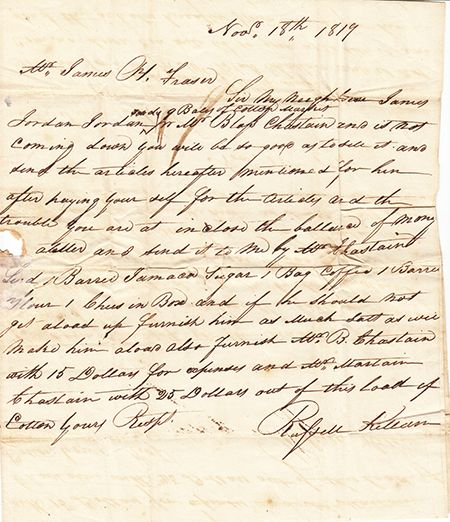 Novr. 18th, 1819
Mr. James H. Fraser
Sir My James
sends 9 Bales of Cotton
Jordan Jordan by Mr. Blap Chastain and is not
coming down you will be so good as to sele it and
send the articles hereafter mentioned for him
after paying your self for the articles and the
trouble you are at in close the ballance of mony
a letter and send it to me by Mr. Chastain
Send 1 Barrel Jamaca Sugar 1 Bag Coffie 1 Barrel
flour 1 Chees in Box and if he should not
get a load up furnish him as much Salt as wile
make him a load also furnish Mr. B. Chastain
with 15 Dollars for expenses and Mr. Martain
Chastain with 25 Dollars out of this load of
Cotton Yours Resp.
Russell